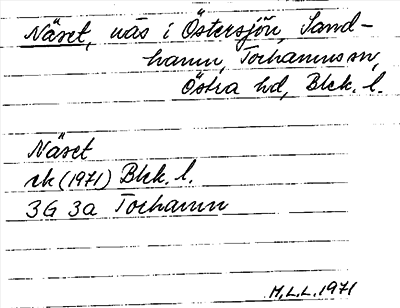 Näset, näs i Östersjön, Sand-
hamn, Torhamns sn,
Östra hd, Blek. l.
Näset
ek (1971) Blek. l.
3G 3a Torhamn
H.L.L. 1971